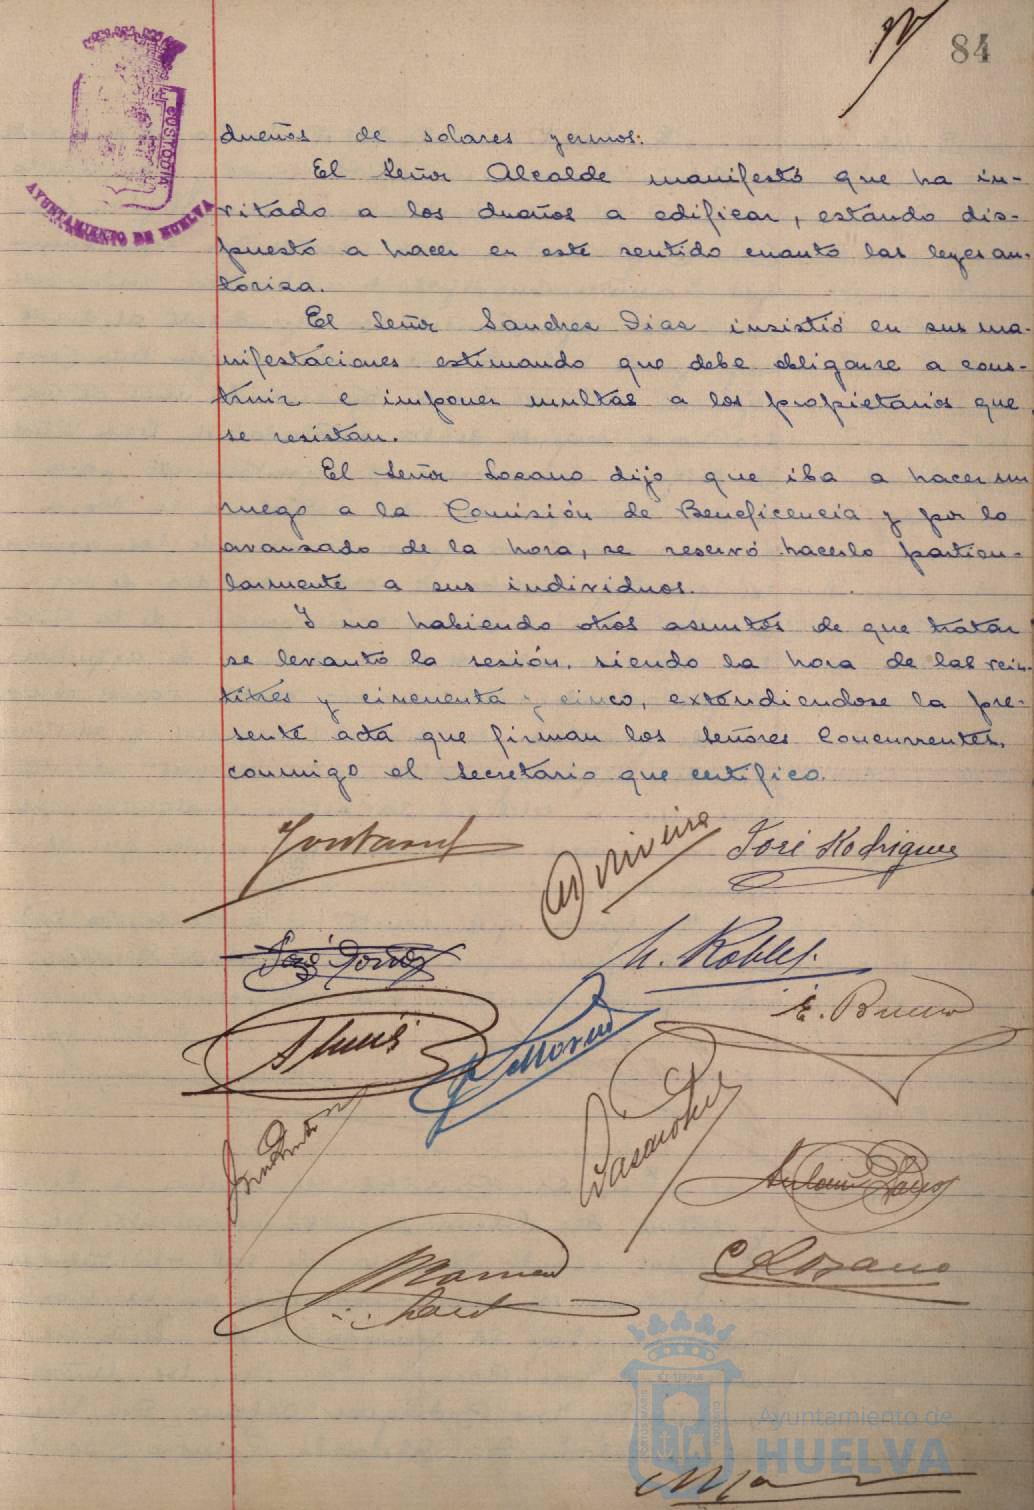 84
CUSTODIA
AYUNTAMIENTO DE HUELVA
dueños de solares yermos.
El Señor Alcalde manifestó que ha in-
vitado a los dueños a edificar, estando dis-
puesto a hacer en este sentido cuanto las leyes au-
toriza.
El Señor Sanchez Diaz insistió en sus ma-
nifestaciones estimando que debe obligarse a cons-
truir e imponer multas a los propietarios que
se resistan.
El Señor Lozano dijo que iba a hacer un
ruego a la Comisión de Beneficencia y por lo
avanzado de la hora, se reservó hacerlo particu-
larmente a sus individuos.
Y no habiendo otros asuntos de que tratar
se levantó la sesión, siendo la hora de las vein-
titres y cincuenta y cinco, extendiendose la pre-
sente acta que firman los señores Concurrentes,
conmigo el Secretario que certifico.
José Rodriguez
M. Robles.
E. Bueno
Moreno
C Lozano
Ayuntamiento de
HUELVA